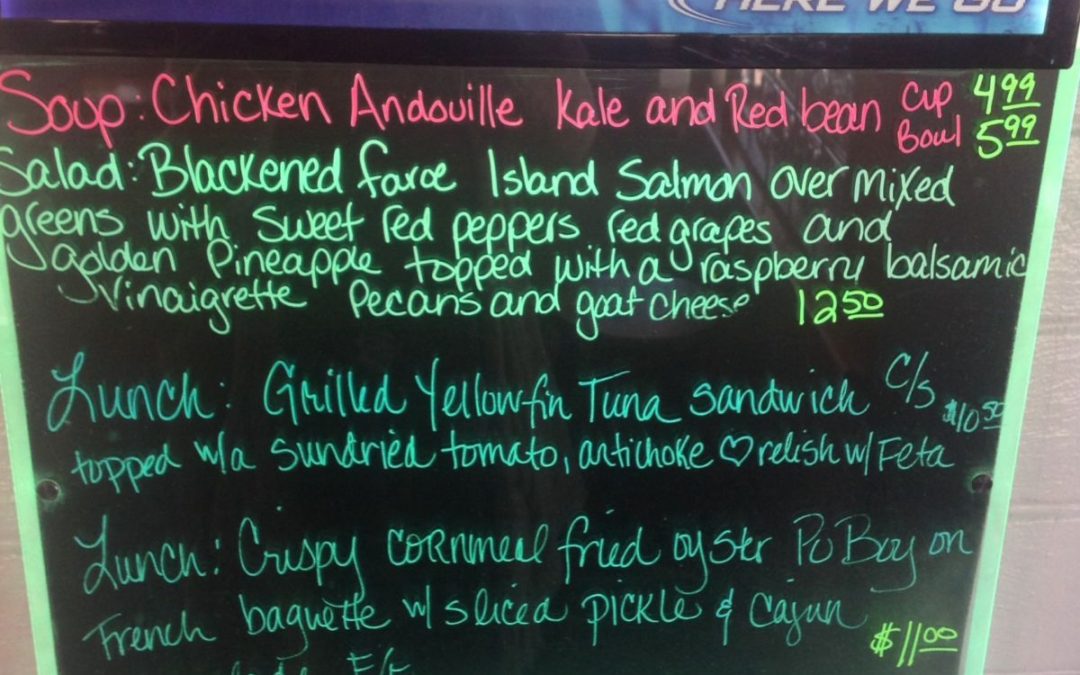 HERE WE GO
Soup: Chicken Andouille Kale and Red bean Cup 4.99
Bowl 5.99
Salad: Blackened faroe Island Salmon over mixed
greens with sweet red peppers red grapes and
golden Pineapple topped with a raspberry balsamic
Vinaigrette Pecans and goat cheese 12.50
Lunch: Grilled Yellowfin Tuna sandwich C/S $10.50
topped w/a sundried tomato, artichoke ♡ relish w/ Feta
Lunch: Crispy cornmeal fried oyster Po Boy on
French baguette w/ sliced pickle & Cajun
$11.00
F/F